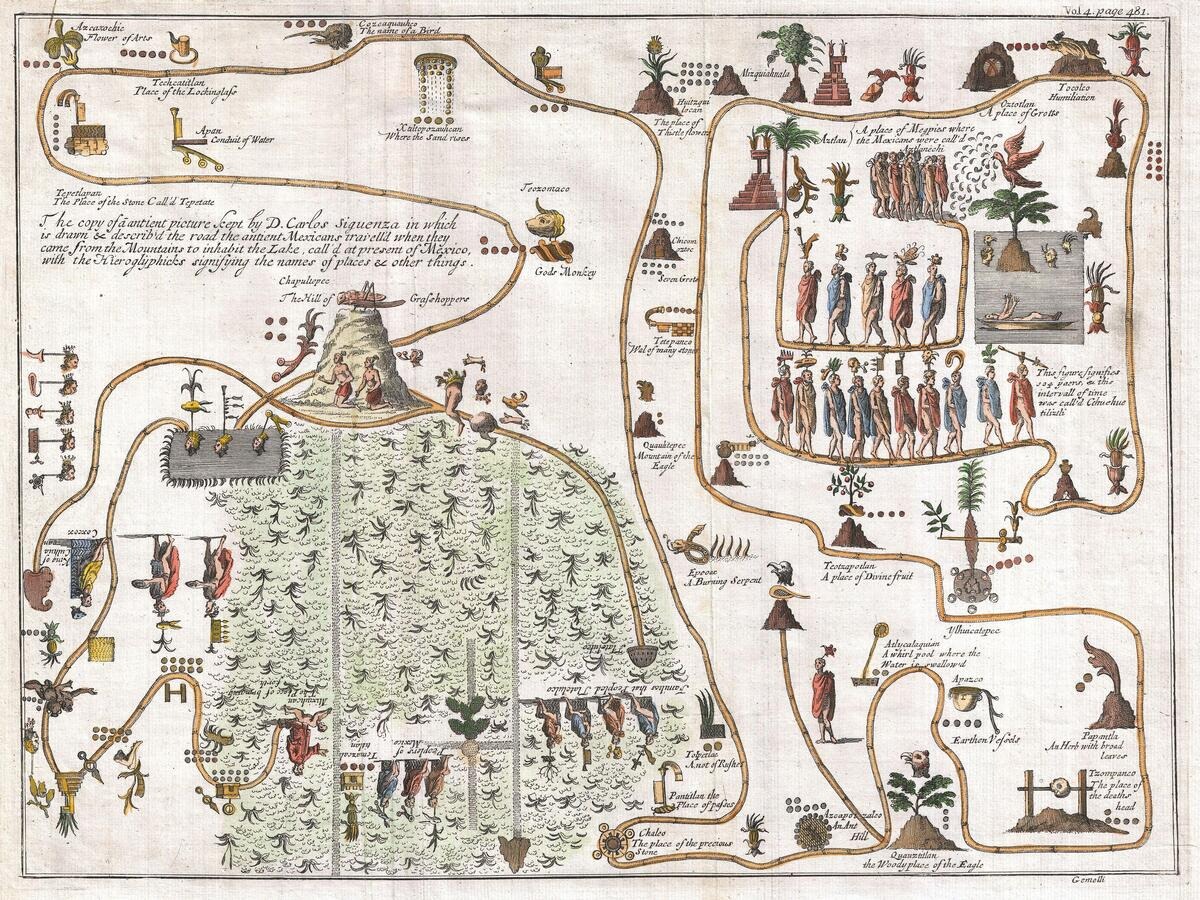 Vol 4. page 481.
Azcaxochic
Flower of Arts
Techcatitlan
Place of the Lockinglass
Cozcaquauhco
The name of a Bird
Xaltepozauhcan
Where the Sand rises
Apan
Conduit of Water
Tepetlapan
The Place of the Stone Call'd Tepetate
The copy of a antient picture kept by D. Carlos Siguenza in which
is drawn & describ'd the road the antient Mexicans travell'd when they
came from the Mountains to inhabit the Lake, call'd at present of Mexico,
with the Hieroglyphicks signifying the names of places & other things.
Teozomaco
Gods Monkey
Chapultepec
The Hill of Grasshoppers
Huitzqui
locan
The place of
Thistle flowers
Mizquiahuala
Oztotlan
A place of Grotts
Tocolco
Humiliation
Aztlan
A place of Megpies where
the Mexicans were call'd
Aztlanechi
Chicom
oztoc
Seven Grots
Tetepanco
Wal of many stones
Quauhtepec
Mountain of the
Eagle
This figure signifies
104 years, & this
intervall of time
was call'd Cihuehue
tilizli
Epcoac
A Burning Serpent
Teotzapotlan
A place of Divine fruit
Ylhuicatepec
Atlycalaquian
A whirl pool where the
Water is swallow'd
Apazco
Earthen Vessels
Papantla
An Herb with broad
leaves
Tzompanco
The place of
the deaths
head
King of
Culhua
can
Cocox
Mexican
The Place of bringing
Forth
Tenuch
titlan
People of
Mexico
Families that Peopled Tlatelulco
Tlatelulco
Tolpetlac
A not of Rushes
Pantitlan the
Place of passes
Chalco
The place of the precious
Stone
Azcapotzalco
An Ant
Hill
Quauztitlan
the Woody place of the Eagle
Gemelli